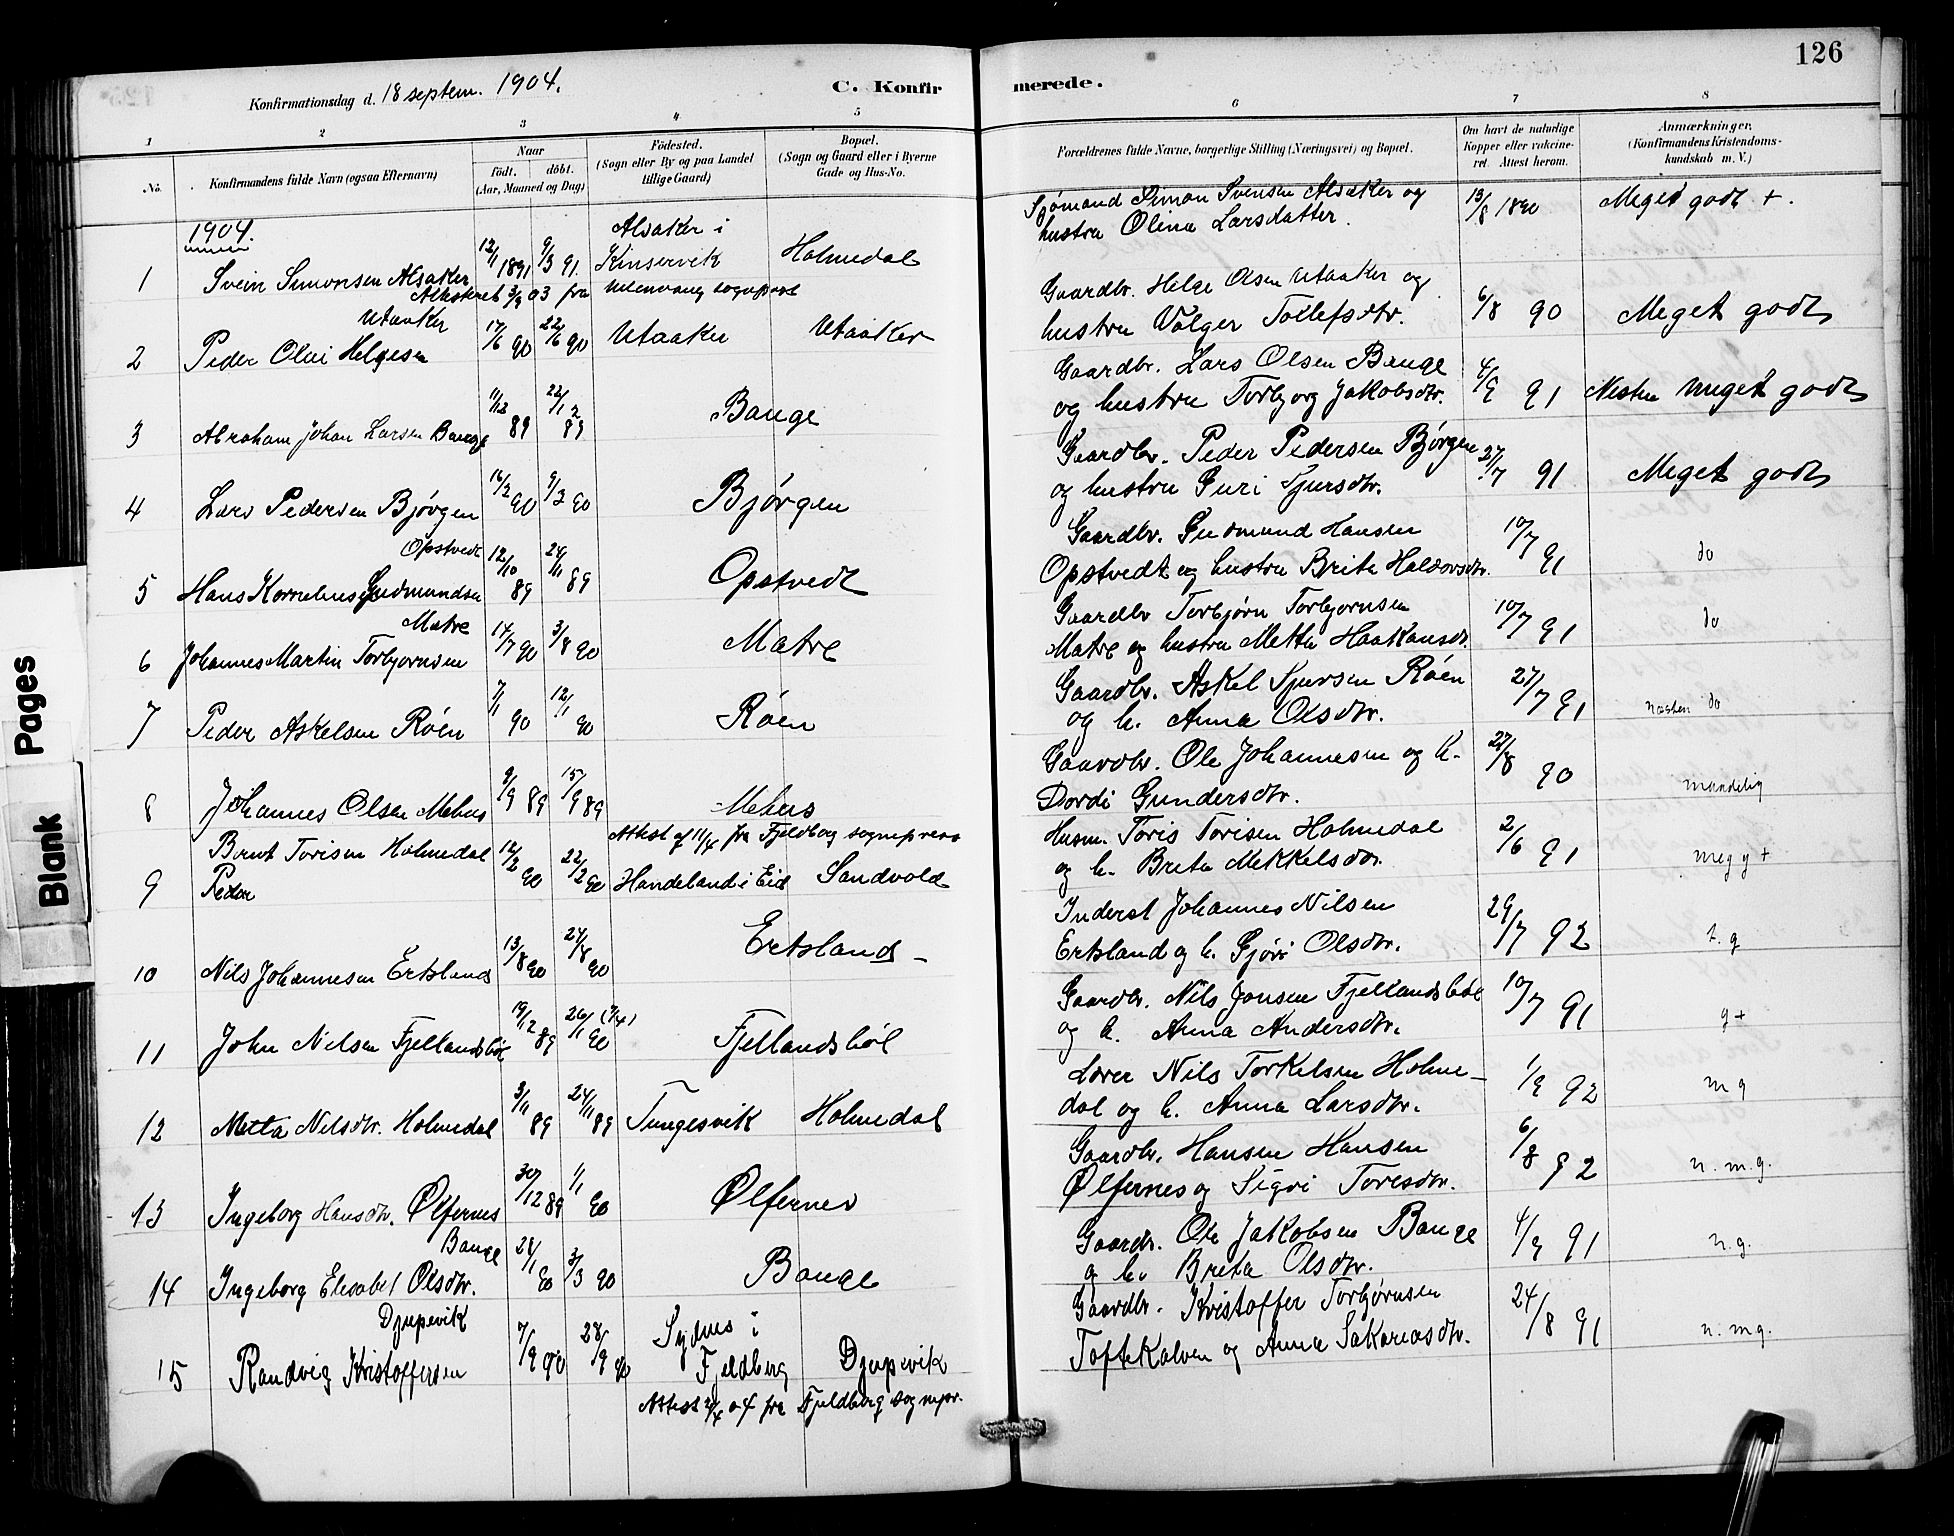 126
Konfirmationsdag d. 18 septem. 1904.
C. Konfirmerede.
1 2 3 4 5 6 7 8
No.
Konfirmandens fulde Navn (ogsaa Efternavn)
Naar
födt. döbt.
(Aar, Maaned og Dag)
Födested.
(Sogn eller By og paa Landet
tillige Gaard)
Bopæl.
(Sogn og Gaard eller i Byerne
Gade og Hus-No.
Forældrenes fulde Navne, borgerlige Stilling (Næringsvei) og Bopæl.
Om havt de naturlige
Kopper eller vaccine-
ret. Attest herom.
Anmærkninger.
(Konfirmandens Kristendoms-
kundskab m. V.)
1904
1 Svein Simonsen Alsaker 12/1 1891 9/3 91. Alsaker i Kinservik Holmedal Sjømand Simon Svensen Alsaker og
hustru Olina Larsdatter. 13/8 1890 Meget godt +.
Attesteret 3/9 03 fra Ullensvang sognepræst
2 Peder Olai Helgesen Utaaker 17/6 90 22/6 90 Utaaker Utaaker Gaardbr. Helge Olsen Utaaker og
hustru Valger Tollefsdtr. 6/8 90 Meget godt
3 Abraham Johan Larsen Bauge 11/12 89 22/12 89 Bauge Gaardbr. Lars Olsen Bauge
og hustru Torbjorg Jakobsdtr. 4/9 91 Nesten meget godt
4 Lars Pedersen Bjørgen 16/2 90 9/3 90 Bjørgen Gaardbr. Peder Pedersen Bjørgen
og hustru Guri Sjursdtr. 27/7 91 Meget godt
5 Hans Kornelius Gudmundsen Opstvedt 12/10 89 24/11 89 Opstvedt Gaardbr. Gudmund Hansen
Opstvedt og hustru Brita Haldorsdtr. 10/7 91 do
6 Johannes Martin Torbjornsen Matre 14/7 90 3/8 90 Matre Gaardbr Torbjørn Torbjornsen
Matre og hustru Metta Haakonsdr. 10/7 91 do
7 Peder Askelsen Røen 7/1 90 12/1 90 Røen Gaardbr. Askel Sjursen Røen
og h. Anna Olsdtr. 27/7 91 næsten do
8 Johannes Olsen Mehus 9/9 89 15/9 89 Mehus Gaardbr. Ole Johannesen og h.
Dordi Gundersdtr. 27/8 90 mandelig
Attest af 11/4 fra Fjeldberg sognepræst
9 Bernt Torisen Holmedal
Peder 12/2 90 22/2 90 Handeland i Eid Sandvold Husm. Toris Torisen Holmedal
og h. Brita Mekkelsdtr. 2/6 91 meg g +
10 Nils Johannesen Ertsland 13/8 90 24/8 90 Ertsland Inderst Johannes Nilsen
Ertsland og h. Gjøri Olsdtr. 29/7 92 t. g
11 John Nilsen Fjellandsbøl 19/12 89 26/1 90 Fjellandsbøl Gaardbr. Nils Jonsen Fjellandsbøl
og h. Anna Andersdtr. 10/7 91 g +
12 Metta Nilsdtr. Holmedal 3/11 89 24/11 89 Tungesvik Holmedal Lærer Nils Torkelsen Holme-
dal og h. Anna Larsdtr. 1/9 92 m g
13 Ingeborg Hansdtr. Ølfernes 30/12 89 1/1 90 Ølfernes Gaardbr. Hansen Hansen
Ølfernes og Sigri Toresdtr. 6/8 92 n. m. g.
14 Ingeborg Elisabet Olsdtr. Bauge 28/1 90 3/3 90 Bauge Gaardbr. Ole Jakobsen Bauge
g h. Brita Olsdtr. 4/9 91 n. g.
15 Randvig Kristoffersen Djupevik 7/9 90 28/9 90 Sydnes i Fjeldberg Djupevik Gaardbr. Kristoffer Torbjørnsen
Toftekalven og Anna Sakariasdtr. 24/8 91 n. mg.
Attest 2/4 04 fra Fjeldberg sognepr.
Blank Pages